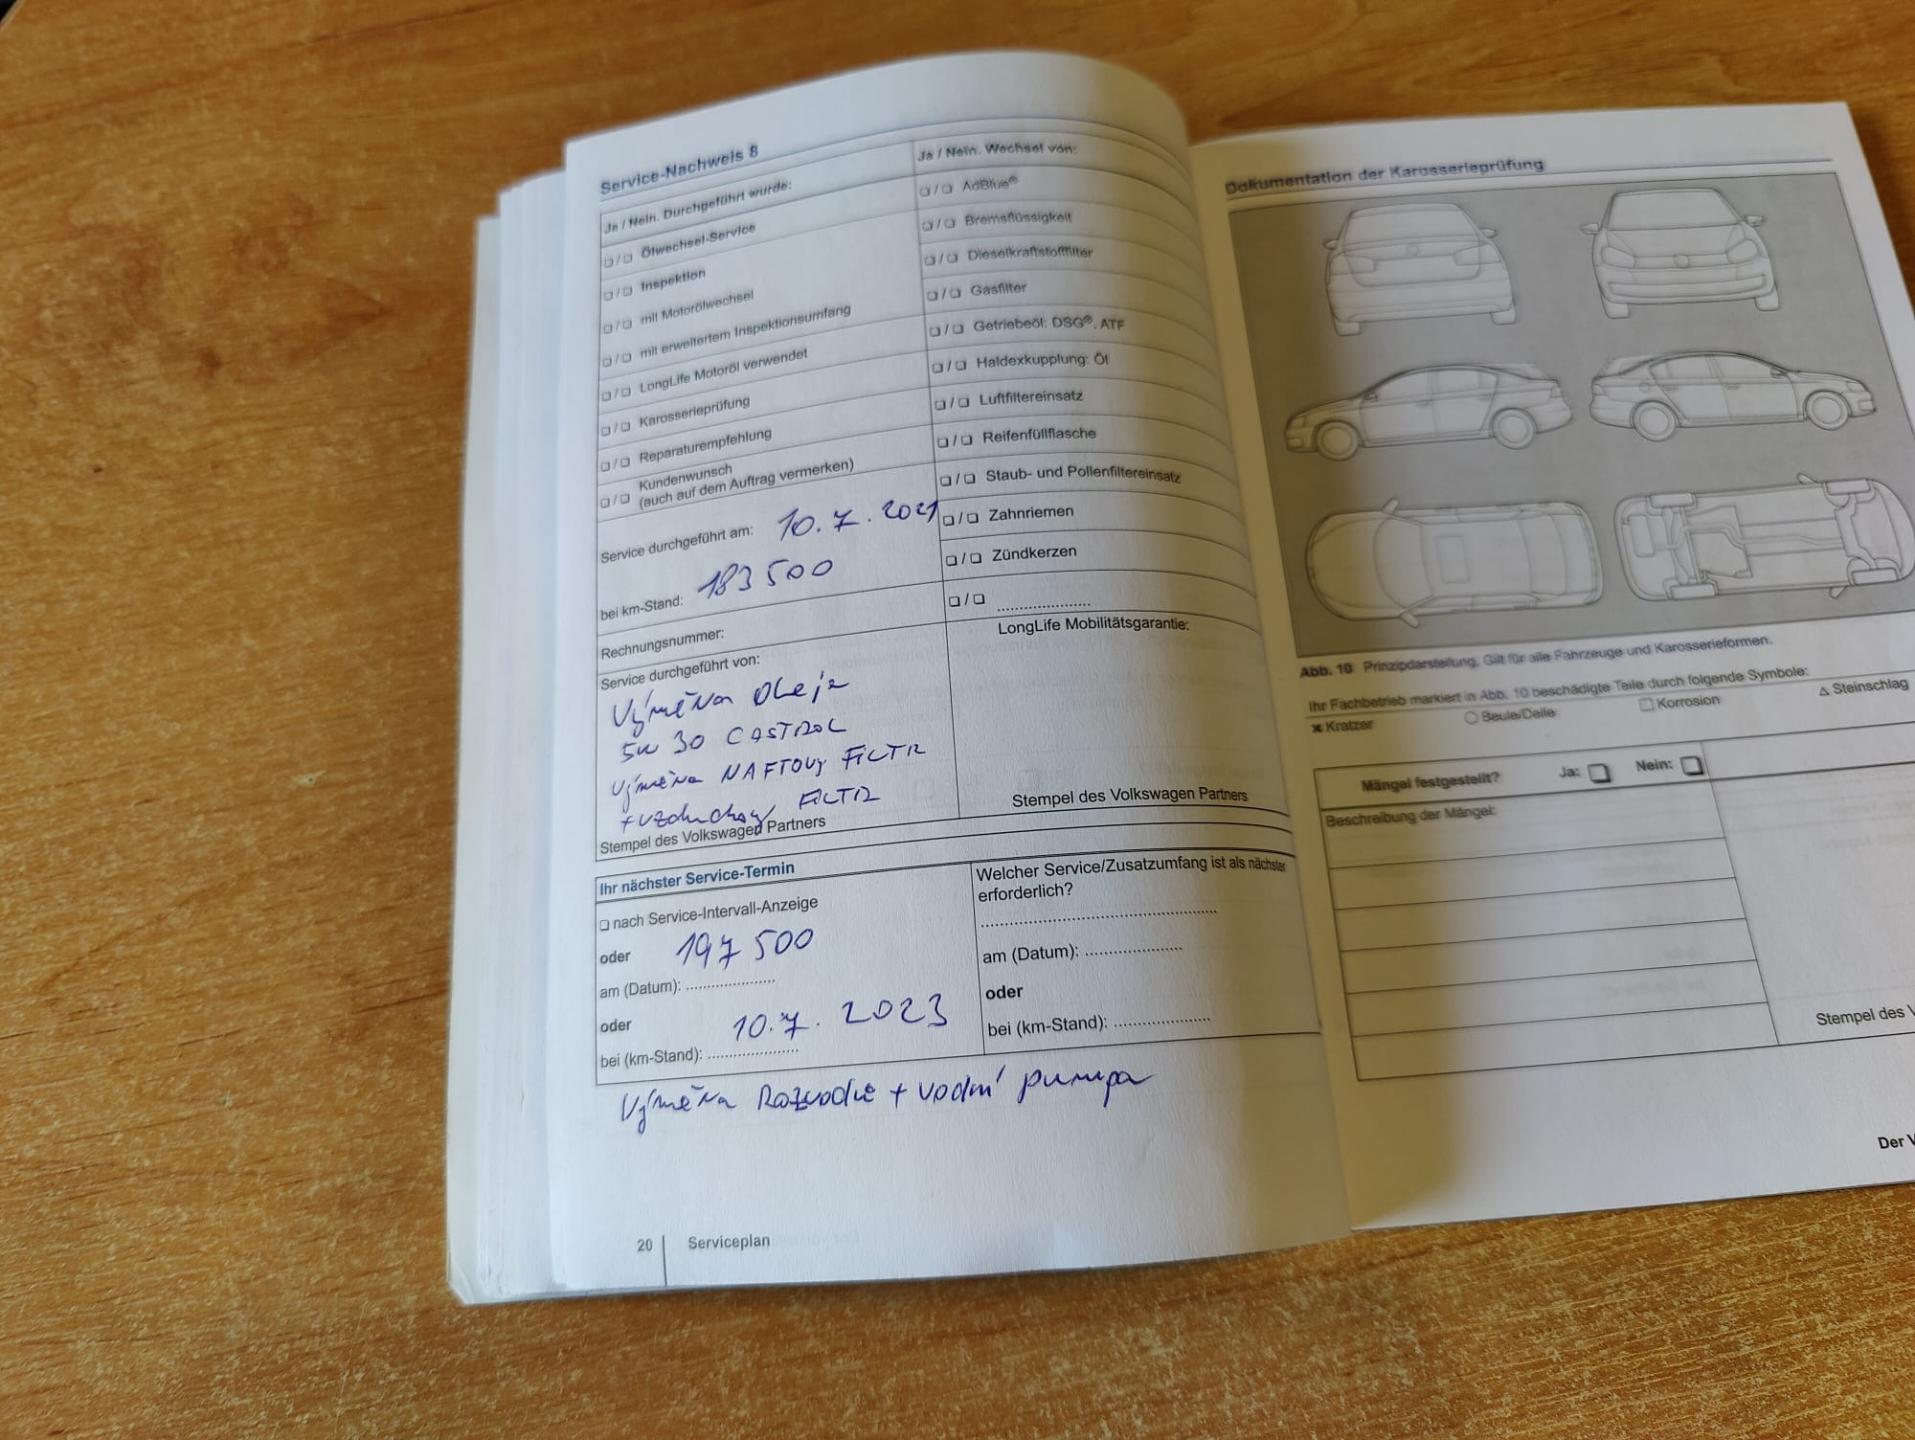 Service-Nachweis 8
Ja / Nein. Durchgeführt wurde:
❑ / ❑ Ölwechsel-Service
❑ / ❑ Inspektion
❑ / ❑ mit Motorölwechsel
❑ / ❑ mit erweitertem Inspektionsumfang
❑ / ❑ LongLife Motoröl verwendet
❑ / ❑ Karosserieprüfung
❑ / ❑ Reparaturempfehlung
❑ / ❑ Kundenwunsch
(auch auf dem Auftrag vermerken)
Service durchgeführt am: 10.7.2021
bei km-Stand: 183 500
Rechnungsnummer:
Service durchgeführt von:
Výměna oleje
5W 30 CASTROL
Výměna NAFTOVý FILTR
+ vzduchový FILTR
Stempel des Volkswagen Partners
Ja / Nein. Wechsel von:
❑ / ❑ AdBlue®
❑ / ❑ Bremsflüssigkeit
❑ / ❑ Dieselkraftstofffilter
❑ / ❑ Gasfilter
❑ / ❑ Getriebeöl: DSG®, ATF
❑ / ❑ Haldexkupplung: Öl
❑ / ❑ Luftfiltereinsatz
❑ / ❑ Reifenfüllflasche
❑ / ❑ Staub- und Pollenfiltereinsatz
❑ / ❑ Zahnriemen
❑ / ❑ Zündkerzen
❑ / ❑ .....................
LongLife Mobilitätsgarantie:
Stempel des Volkswagen Partners
Ihr nächster Service-Termin
❑ nach Service-Intervall-Anzeige
oder 197 500
am (Datum): ....................
oder 10.7.2023
bei (km-Stand): ....................
Welcher Service/Zusatzumfang ist als nächster
erforderlich?
.....................................................
am (Datum): ......................
oder
bei (km-Stand): ......................
Výměna Rozvodů + vodní pumpa
20 | Serviceplan
Dokumentation der Karosserieprüfung
Abb. 10 Prinzipdarstellung. Gilt für alle Fahrzeuge und Karosserieformen.
Ihr Fachbetrieb markiert in Abb. 10 beschädigte Teile durch folgende Symbole:
✖ Kratzer ○ Beule/Delle □ Korrosion △ Steinschlag
Mängel festgestellt? Ja: ❑ Nein: ❑
Beschreibung der Mängel:
Stempel des V
Der V